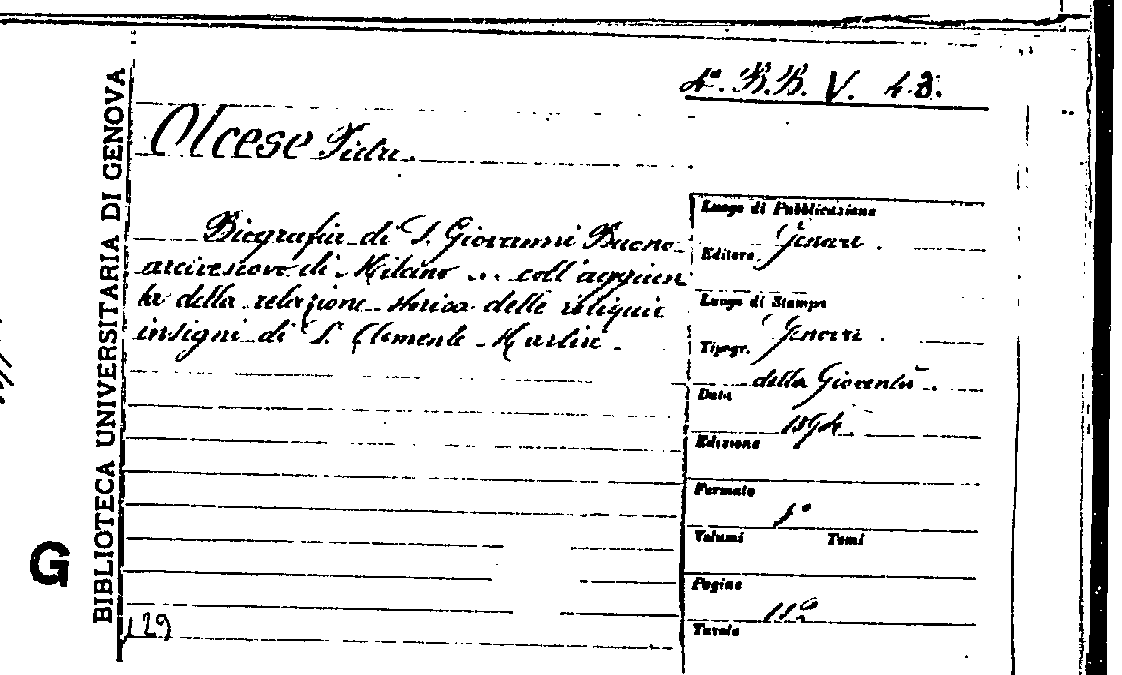 BIBLIOTECA UNIVERSITARIA DI GENOVA
4ª. B.B. V. 43.
Olcese
Biografia di S. Giovanni Buono
arcivescovo di Milano ... coll'aggiun
ta della relazione storica delle reliquie
insigni di S. Clemente Martire.
Luogo di Pubblicazione
Genova.
Editore
Luogo di Stampa
Genova.
Tipogr.
della Gioventù.
Data
1894
Edizione
Formato
Volumi Tomi
Pagine
Tavole
G
129